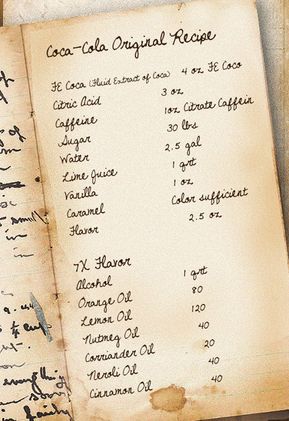 Coca-Cola Original Recipe
FE Coca (Fluid Extract of Coca) 4 oz FE Coco
Citric Acid 3 oz
Caffeine 1oz Citrate Caffein
Sugar 30 lbs
Water 2.5 gal
Lime Juice 1 qrt
Vanilla 1 oz
Caramel Color sufficient
Flavor 2.5 oz
7X Flavor
Alcohol 1 qrt
Orange Oil 80
Lemon Oil 120
Nutmeg Oil 40
Corriander Oil 20
Neroli Oil 40
Cinnamon Oil 40
of
in
in
everything